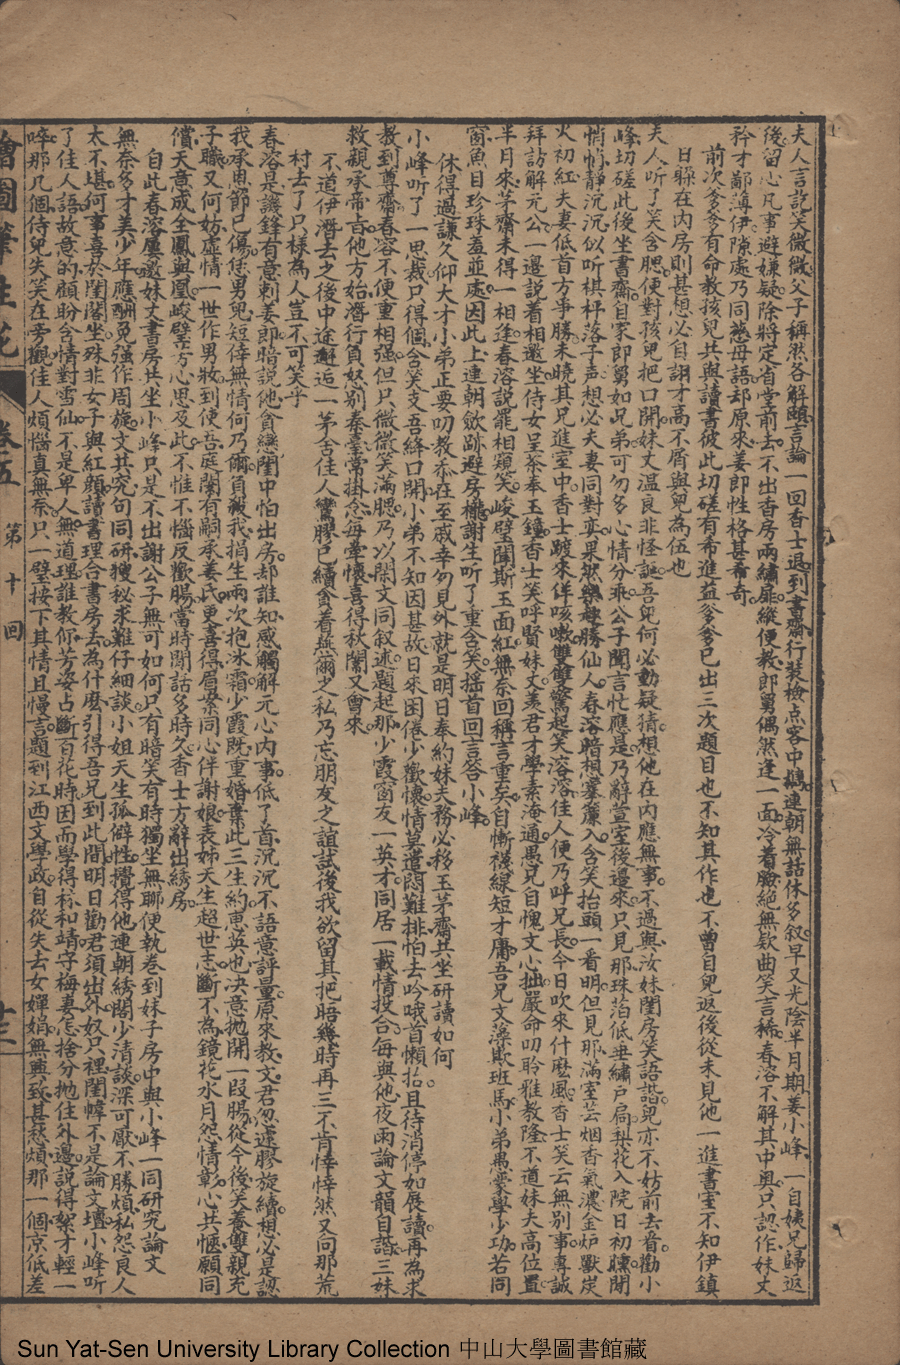 夫人言說笑微微父子稱然各解頤言論一回香士退到書齋行裝檢点客中韻連朝無話休多叙早又光陰半月期姜小峰一自姨兄歸返
後留心凡事避嫌疑除將定省堂前去不出香房兩繡扉縱便教郎舅偶然逢一面冷着臉絕無欵曲笑言稀春溶不解其中奧只認作妹丈
矜才鄙薄伊隙處乃同慈母語却原來姜郎性格甚希奇
前次爹爹有命教孩兒共與讀書彼此切磋有希進益爹爹已出三次題目也不知其作也不曾自兒返後從未見他一進書室不知伊鎮
日躲在内房則甚想必自詡才高不屑與兒為伍也
夫人听了笑含腮便對孩兒把口開妹丈温良非怪誕吾兒何必動疑猜想他在内應無事不過與汝妹閨房笑語諧兒亦不妨前去音勸小
峰切磋此後坐書齋自家郎舅如兄弟可勿多心情分乖公子聞言忙應是乃辭萱室後邊來只見那珠箔低垂繡戶扃梨花入院日初曛閒
悄悄靜沉沉似听棋枰落子声想必夫妻同對奕果然樂趣勝仙人春溶暗想搴簾入含笑抬頭一看明但見那滿室芸烟香氣濃金炉獸炭
火初紅夫妻低首方爭勝未曉其兄進室中香士踱來佯咳嗽雙雙驚起笑溶溶佳人便乃呼兄長今日吹來什麼風香士笑云無別事專誠
拜訪解元公一邊說着相邀坐侍女呈茶奉玉鐘香士笑呼賢妹丈羨君才學素淹通愚兄自愧文心拙嚴命叨聆雅教隆不道妹夫高位置
半月來芋齋未得一相逢春溶說罷相窺笑峻壁聞斯玉面紅無奈回稱言重矣自慚襪線短才庸吾兄文藻欺班馬小弟愚蒙學少功若同
窗魚目珍珠羞並處因此上連朝歛跡避房櫳謝生听了重含笑搖首回言答小峰
休得過謙久仰大才小弟正要叨教忝在至戚幸勿見外就是明日奉約妹夫務必移玉茅齋共坐研讀如何
小峰听了一思裁只得個含笑支吾絳口開小弟不知因甚故日來困倦少歡懷情莫遣悶難排怕去吟哦首懶抬且待消停如展讀再為求
教到尊齋春容不便重相强但只微微笑滿腮乃以閒文同叙述題起那少霞窗友一英才同居一載情投合每與他夜雨論文韻自諧三妹
救親承帝旨他方始潛行負怒別秦臺常掛念每牽懷喜得秋闈又會來
不道伊潛去之後中途邂逅一茅舍佳人鸞膠已續貪着燕爾之私乃忘朋友之誼試後我欲留其把晤幾時再三不肯悻悻然又向那荒
村去了只樣為人豈不可笑乎
春溶是譏鋒有意刺姜郎暗說他貪戀閨中怕出房却誰知感觸解元心内事低了首沉沉不語意評量原來教文君忽遽膠旋續想必是認
我承恩節已傷恁男兒短倖無情何乃爾負義我捐生兩次抱冰霜少霞既重婚棄此三生約惠英也决意抛開一段腸從今後笑養雙親充
子職又何妨虛情一世作男妝到使吾庭闈有嗣承姜氏更喜得眉案同心伴謝娘表姊天生超世志斷不為鏡花水月怨情彰心共愜願同
償天意成全鳳與凰峻壁方心思及此不惟不惱反歡腸當時閒話多時久香士方辭出綉房
自此春溶屢邀妹丈書房共坐小峰只是不出謝公子無可如何只有暗笑有時獨坐無聊便執卷到妹子房中與小峰一同研究論文
無奈多才美少年應酬勉强作周旋文共究句同研搜秘求難仔細談小姐天生孤僻性攪得他連朝綉閣少清談深可厭不勝煩私怨良人
太不堪何事喜於閨閣坐殊非女子與紅顔讀書理合書房去為什麼引得吾兄到此間明日勸君須出外奴只裡閨幃不是論文壇小峰听
了佳人語故意的顧盼含情對雪仙不是卑人無道理誰教你芳姿占斷百花時因而學得林和靖守梅妻怎捨分抛住外邊說得粲才輕一
啐那几個侍兒失笑在旁觀佳人煩惱真無奈只一壁接下其情且慢言題到江西文學政自從失去女嬋娟無興致甚愁煩那一個京低差
繪圖筆生花
卷五
第十回
十三
Sun Yat-Sen University Library Collection 中山大學圖書館藏